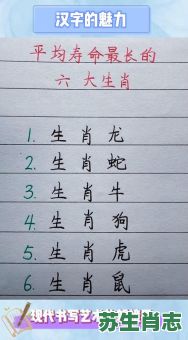 汉字的魅力
平均寿命最长的
六 大生肖
1. 生 肖 龙
2. 生 肖 蛇
3. 生 肖 牛
4. 生 肖 狗
5. 生 肖 虎
6. 生 肖 鼠
现代书写艺术
苏生肖志